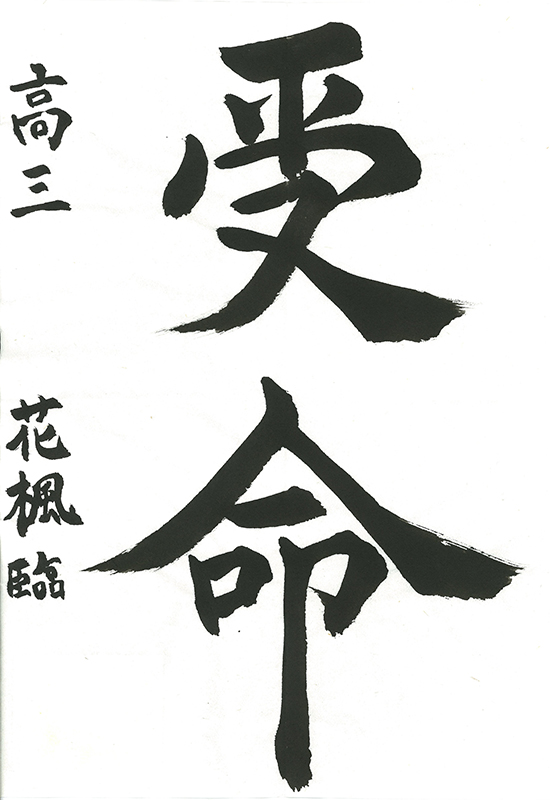 受命
高三 花楓臨